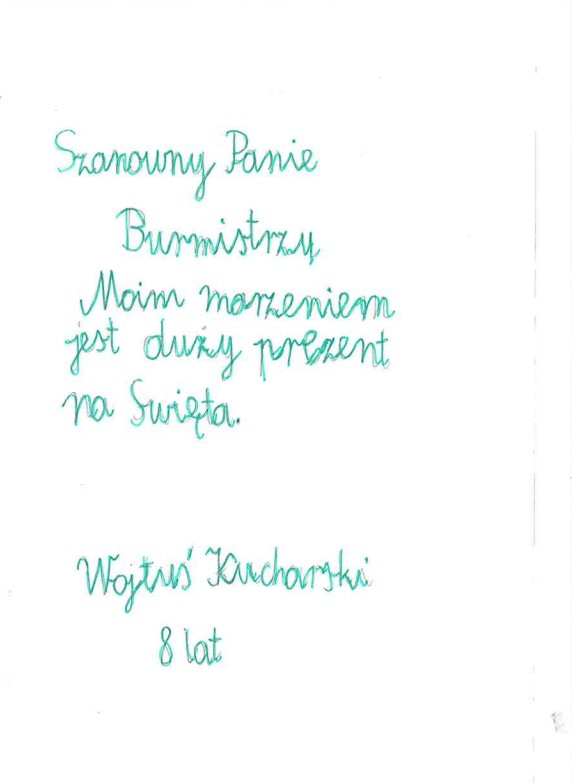 Szanowny Panie
Burmistrzy
Moim marzeniem
jest duży prezent
na Swięta.
Wojtuś Kucharski
8 lat